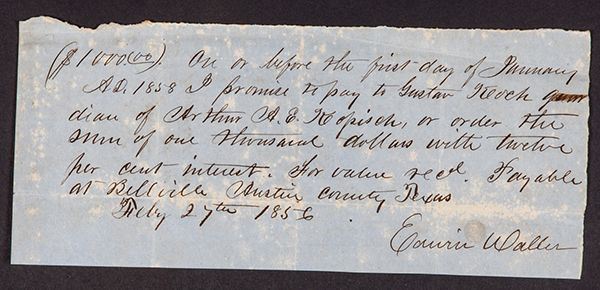 ($1000(00). On or before the first day of January
A.D. 1858 I promise to pay to Gustav Koch guar
dian of Arthur A. E. Kopisch, or order the
sum of one thousand dollars with twelve
per cent interest. For value recd. Payable
at Bellville Austin County Texas
Feby 27th 1856
Edwin Waller